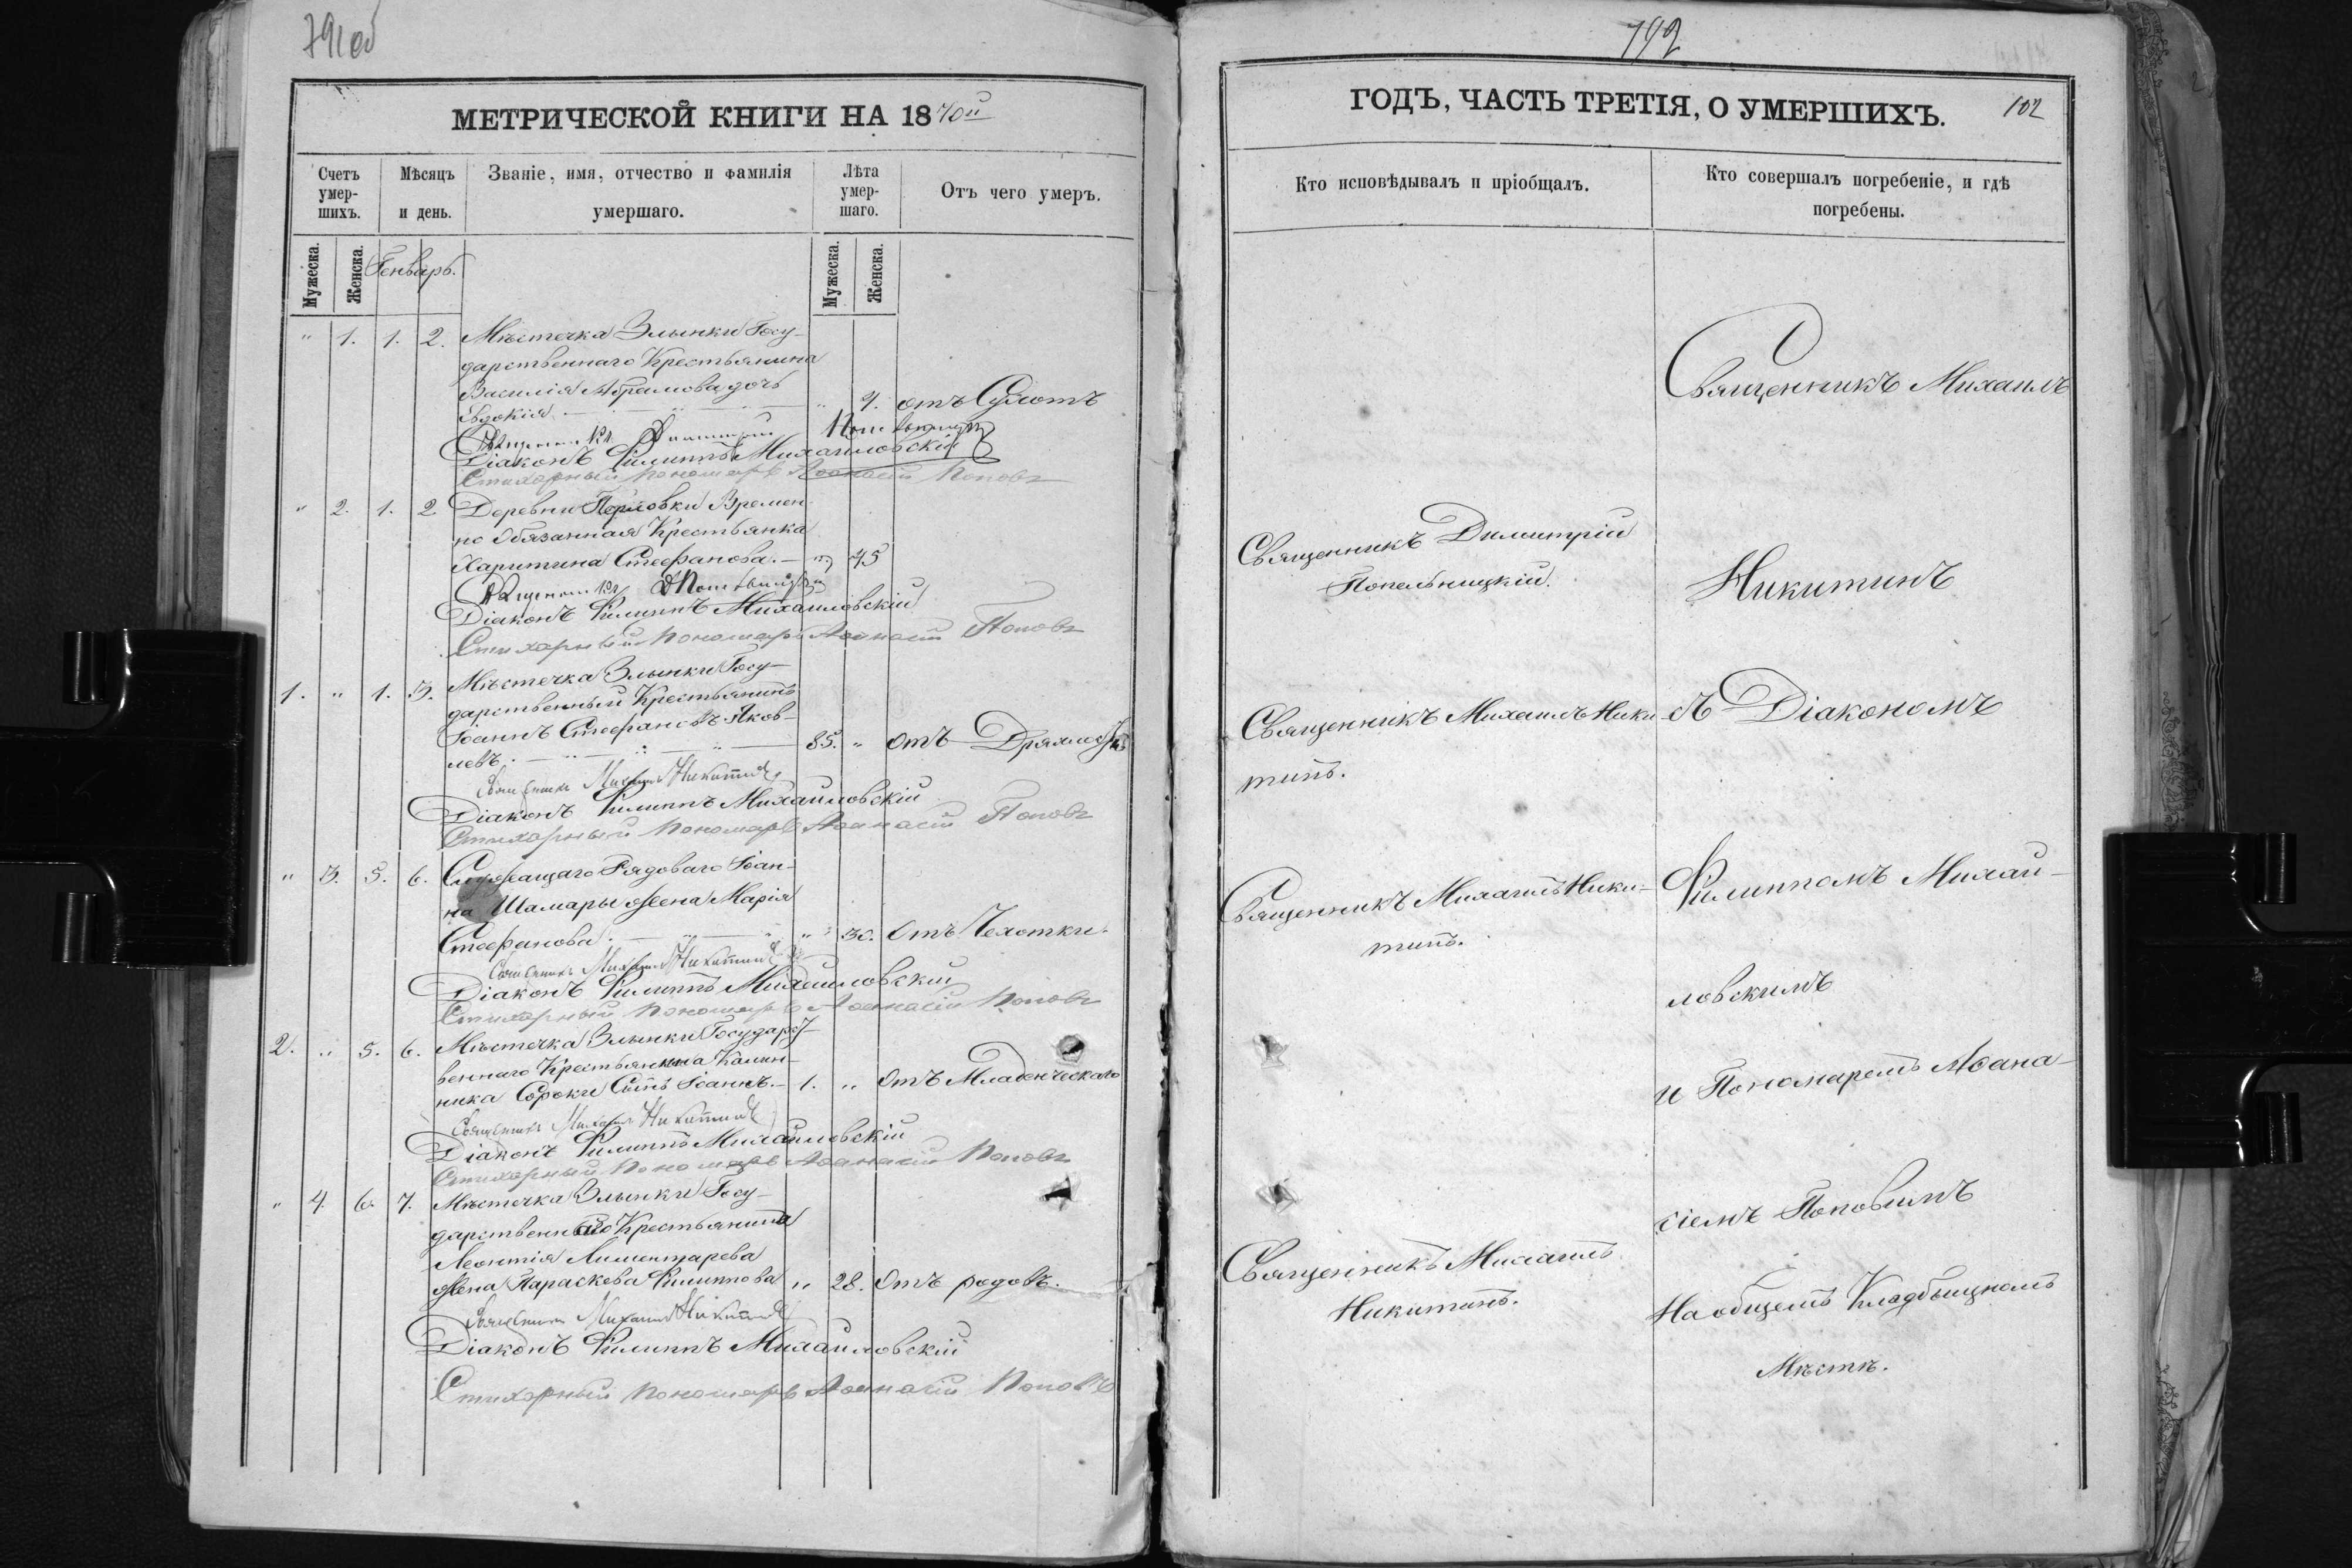 791об
МЕТРИЧЕСКОЙ КНИГИ НА 1870й
Счетъ умер-шихъ.
Мѣсяцъ и день.
Званіе, имя, отчество и фамилія умершаго.
Лѣта умер-шаго.
Отъ чего умеръ.
Мужеска. Женска. Генварь. Мужеска. Женска.
" 1. 1. 2. Мѣстечка Злынки Госу-
дарственнаго Крестьянина
Василія Абрамова дочь
Евдокія. " 9. отъ Сухотъ
Діаконъ Филиппъ Михайловскій
Стихарный Пономарь Аѳанасій Поповъ
" 2. 1. 2 Деревни Временно
но Обязанная Крестьянка
Харитина Стефанова. — " 45
Діаконъ Филиппъ Михайловскій
Стихарный Пономарь Аѳанасій Поповъ
1. " 1. 3. Мѣстечка Злынки Госу-
дарственный Крестьянинъ
Іоаннъ Стефановъ Яков-
левъ. 85. " отъ Дряхлости
Священникъ Михаилъ Никитинъ
Діаконъ Филиппъ Михайловскій
Стихарный Пономарь Аѳанасій Поповъ
" 3. 5. 6. Служащаго Рядоваго Іоан-
на Шамары жена Марія
Стефанова. " 30. Отъ Чехотки.
Священникъ Михаилъ Никитинъ
Діаконъ Филиппъ Михайловскій
Стихарный Пономарь Аѳанасій Поповъ
2. " 5. 6. Мѣстечка Злынки Государст-
веннаго Крестьянина Калин-
ника Сороки Сынъ Іоаннъ. — 1. " Отъ Младенческаго
Священникъ Михаилъ Никитинъ
Діаконъ Филиппъ Михайловскій
Стихарный Пономарь Аѳанасій Поповъ
" 4. 6. 7. Мѣстечка Злынки Госу-
дарственнаго Крестьянина
Леонтія
жена Параскева Филиппова " 28. Отъ родовъ.
Священникъ Михаилъ Никитинъ
Діаконъ Филиппъ Михайловскій
Стихарный Пономарь Аѳанасій Поповъ
792
ГОДЪ, ЧАСТЬ ТРЕТІЯ, О УМЕРШИХЪ. 102
Кто исповѣдывалъ и пріобщалъ.
Кто совершалъ погребеніе, и гдѣ
погребены.
Священникъ Димитрій
Попельницкій.
Священникъ Михаилъ Ники-
тинъ.
Священникъ Михаилъ Ники-
тинъ.
Священникъ Михаилъ
Никитинъ.
Священникъ Михаилъ
Никитинъ
съ Діакономъ
Филиппомъ Михай-
ловскимъ
и Пономаремъ Аѳана-
сіемъ Поповымъ
На общемъ Кладбищномъ
Мѣстѣ.